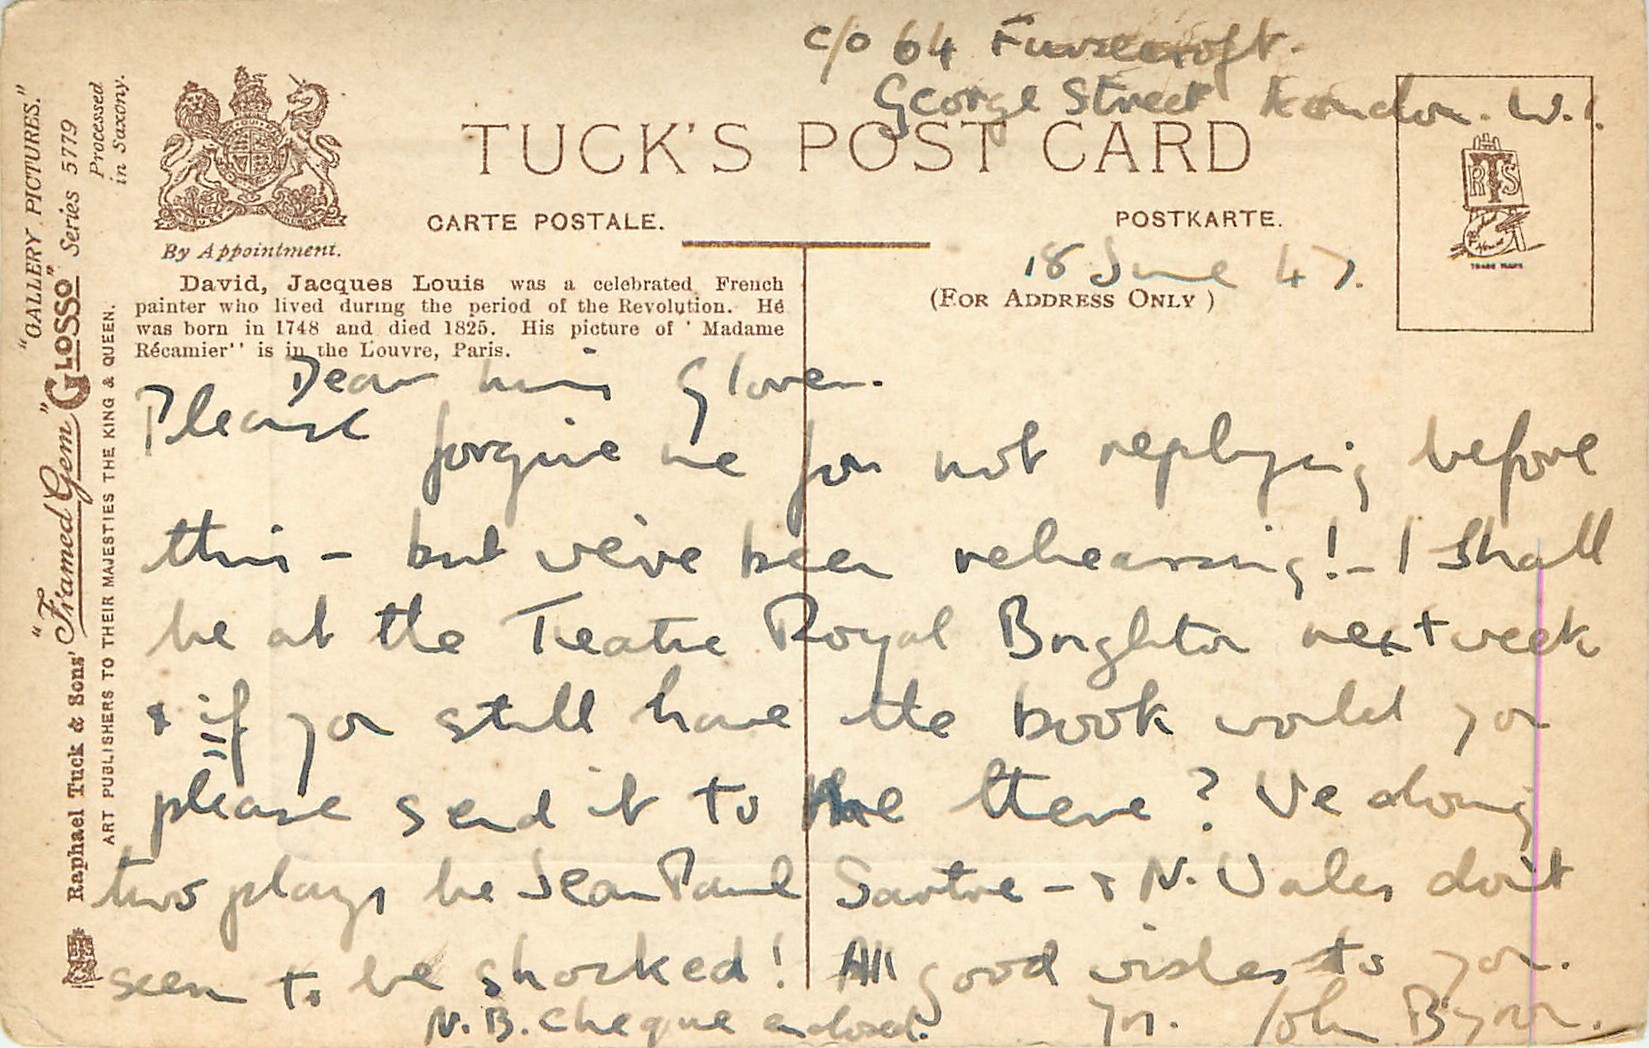 c/o 64 Furzecroft.
George Street London. W.1.
TUCK'S POST CARD
CARTE POSTALE.
POSTKARTE.
By Appointment.
R T S
TRADE MARK
18 June 47.
(FOR ADDRESS ONLY )
David, Jacques Louis was a celebrated French
painter who lived during the period of the Revolution. Hé
was born in 1748 and died 1825. His picture of ' Madame
Récamier'' is in the Louvre, Paris.
"GALLERY PICTURES."
"Framed Gem" GLOSSO" Series 5779
Processed
in Saxony.
Raphael Tuck & Sons'
ART PUBLISHERS TO THEIR MAJESTIES THE KING & QUEEN.
Dear Miss Glover.
Please forgive me for not replying before
this - but we've been rehearsing! - I shall
be at the Teatre Royal Brighton next week
& if you still have the book would you
please send it to me there? We doing
two plays be Jean Paul Sartre - & N. Wales don't
seem to be shocked! All good wishes to you.
N.B. Cheque enclosed. Yrs. John Byron.